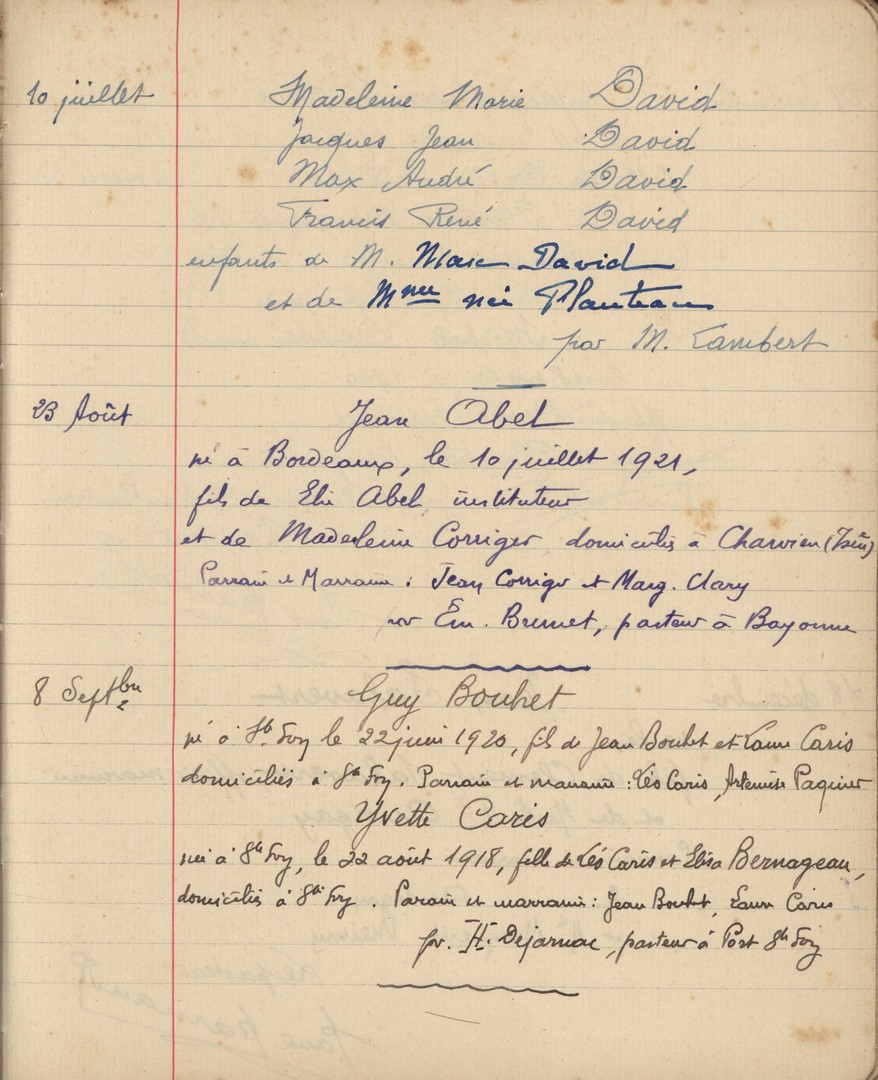 10 juillet Madeleine Marie David
Jacques Jean David
Max André David
Francis René David
enfants de M. Marc David
et de Mme née Planteau
par M. Lambert
23 Août Jean Abel
né à Bordeaux, le 10 juillet 1921,
fils de Elie Abel, instituteur
et de Madeleine Corriger domiciliés à Charvieu (Isère)
Parrain et Marraine : Jean Corriger et Marg. Clary
Em. Brunet, pasteur à Bayonne
8 Septbre Guy Bouhet
né à Ste Foy le 22 juin 1920, fils de Jean Bouhet et Laure Caris
domiciliés à Ste Foy. Parrain et marraine : Léo Caris, Artémise Paquier
Yvette Caris
née à Ste Foy, le 22 août 1918, fille de Léo Caris et Elisa Bernageau,
domiciliés à Ste Foy. Parrain et marraine : Jean Bouhet, Laure Caris
par. H. Dejarnac, pasteur à Port Ste Foy